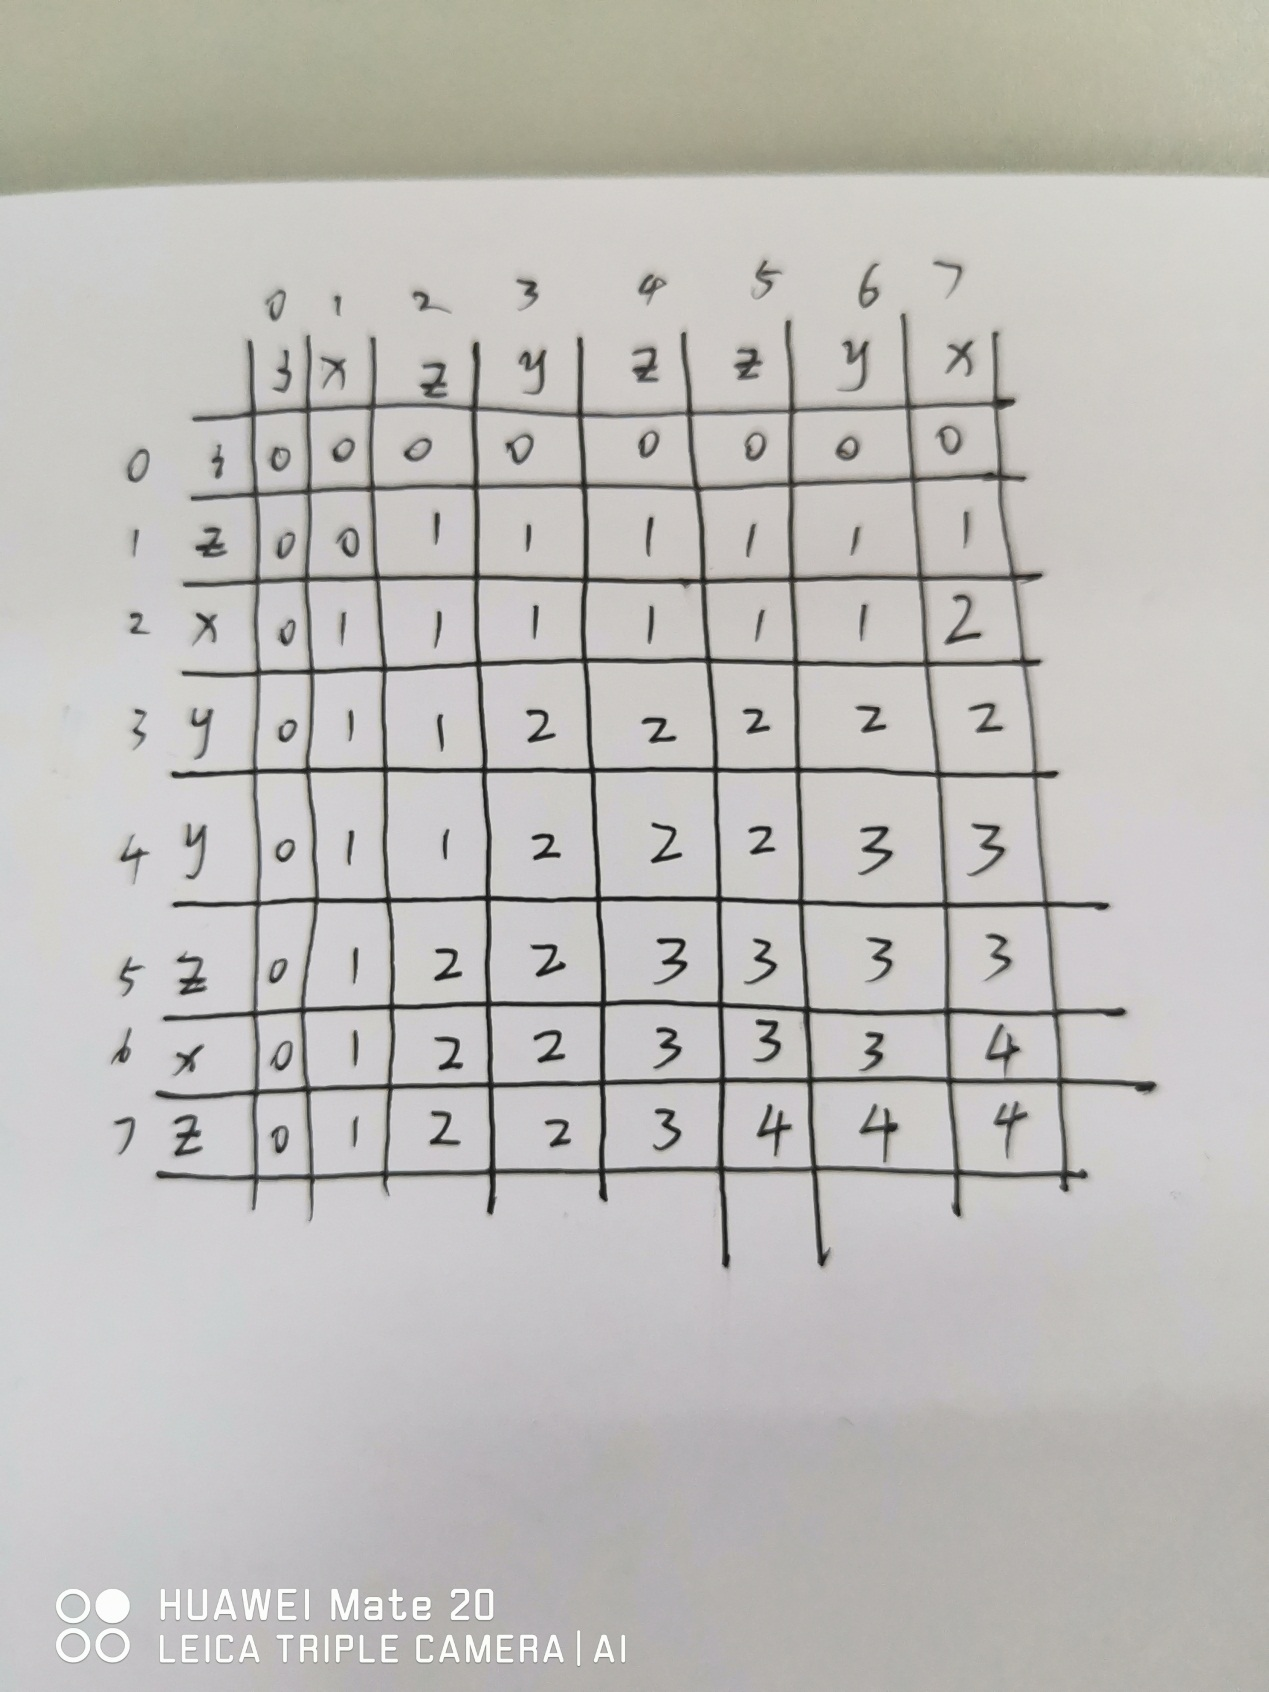 0 1 2 3 4 5 6 7
x z y z z y x
0 0 0 0 0 0 0 0 0
1 z 0 0 1 1 1 1 1 1
2 x 0 1 1 1 1 1 1 2
3 y 0 1 1 2 2 2 2 2
4 y 0 1 1 2 2 2 3 3
5 z 0 1 2 2 3 3 3 3
6 x 0 1 2 2 3 3 3 4
7 z 0 1 2 2 3 4 4 4
HUAWEI Mate 20
LEICA TRIPLE CAMERA | AI